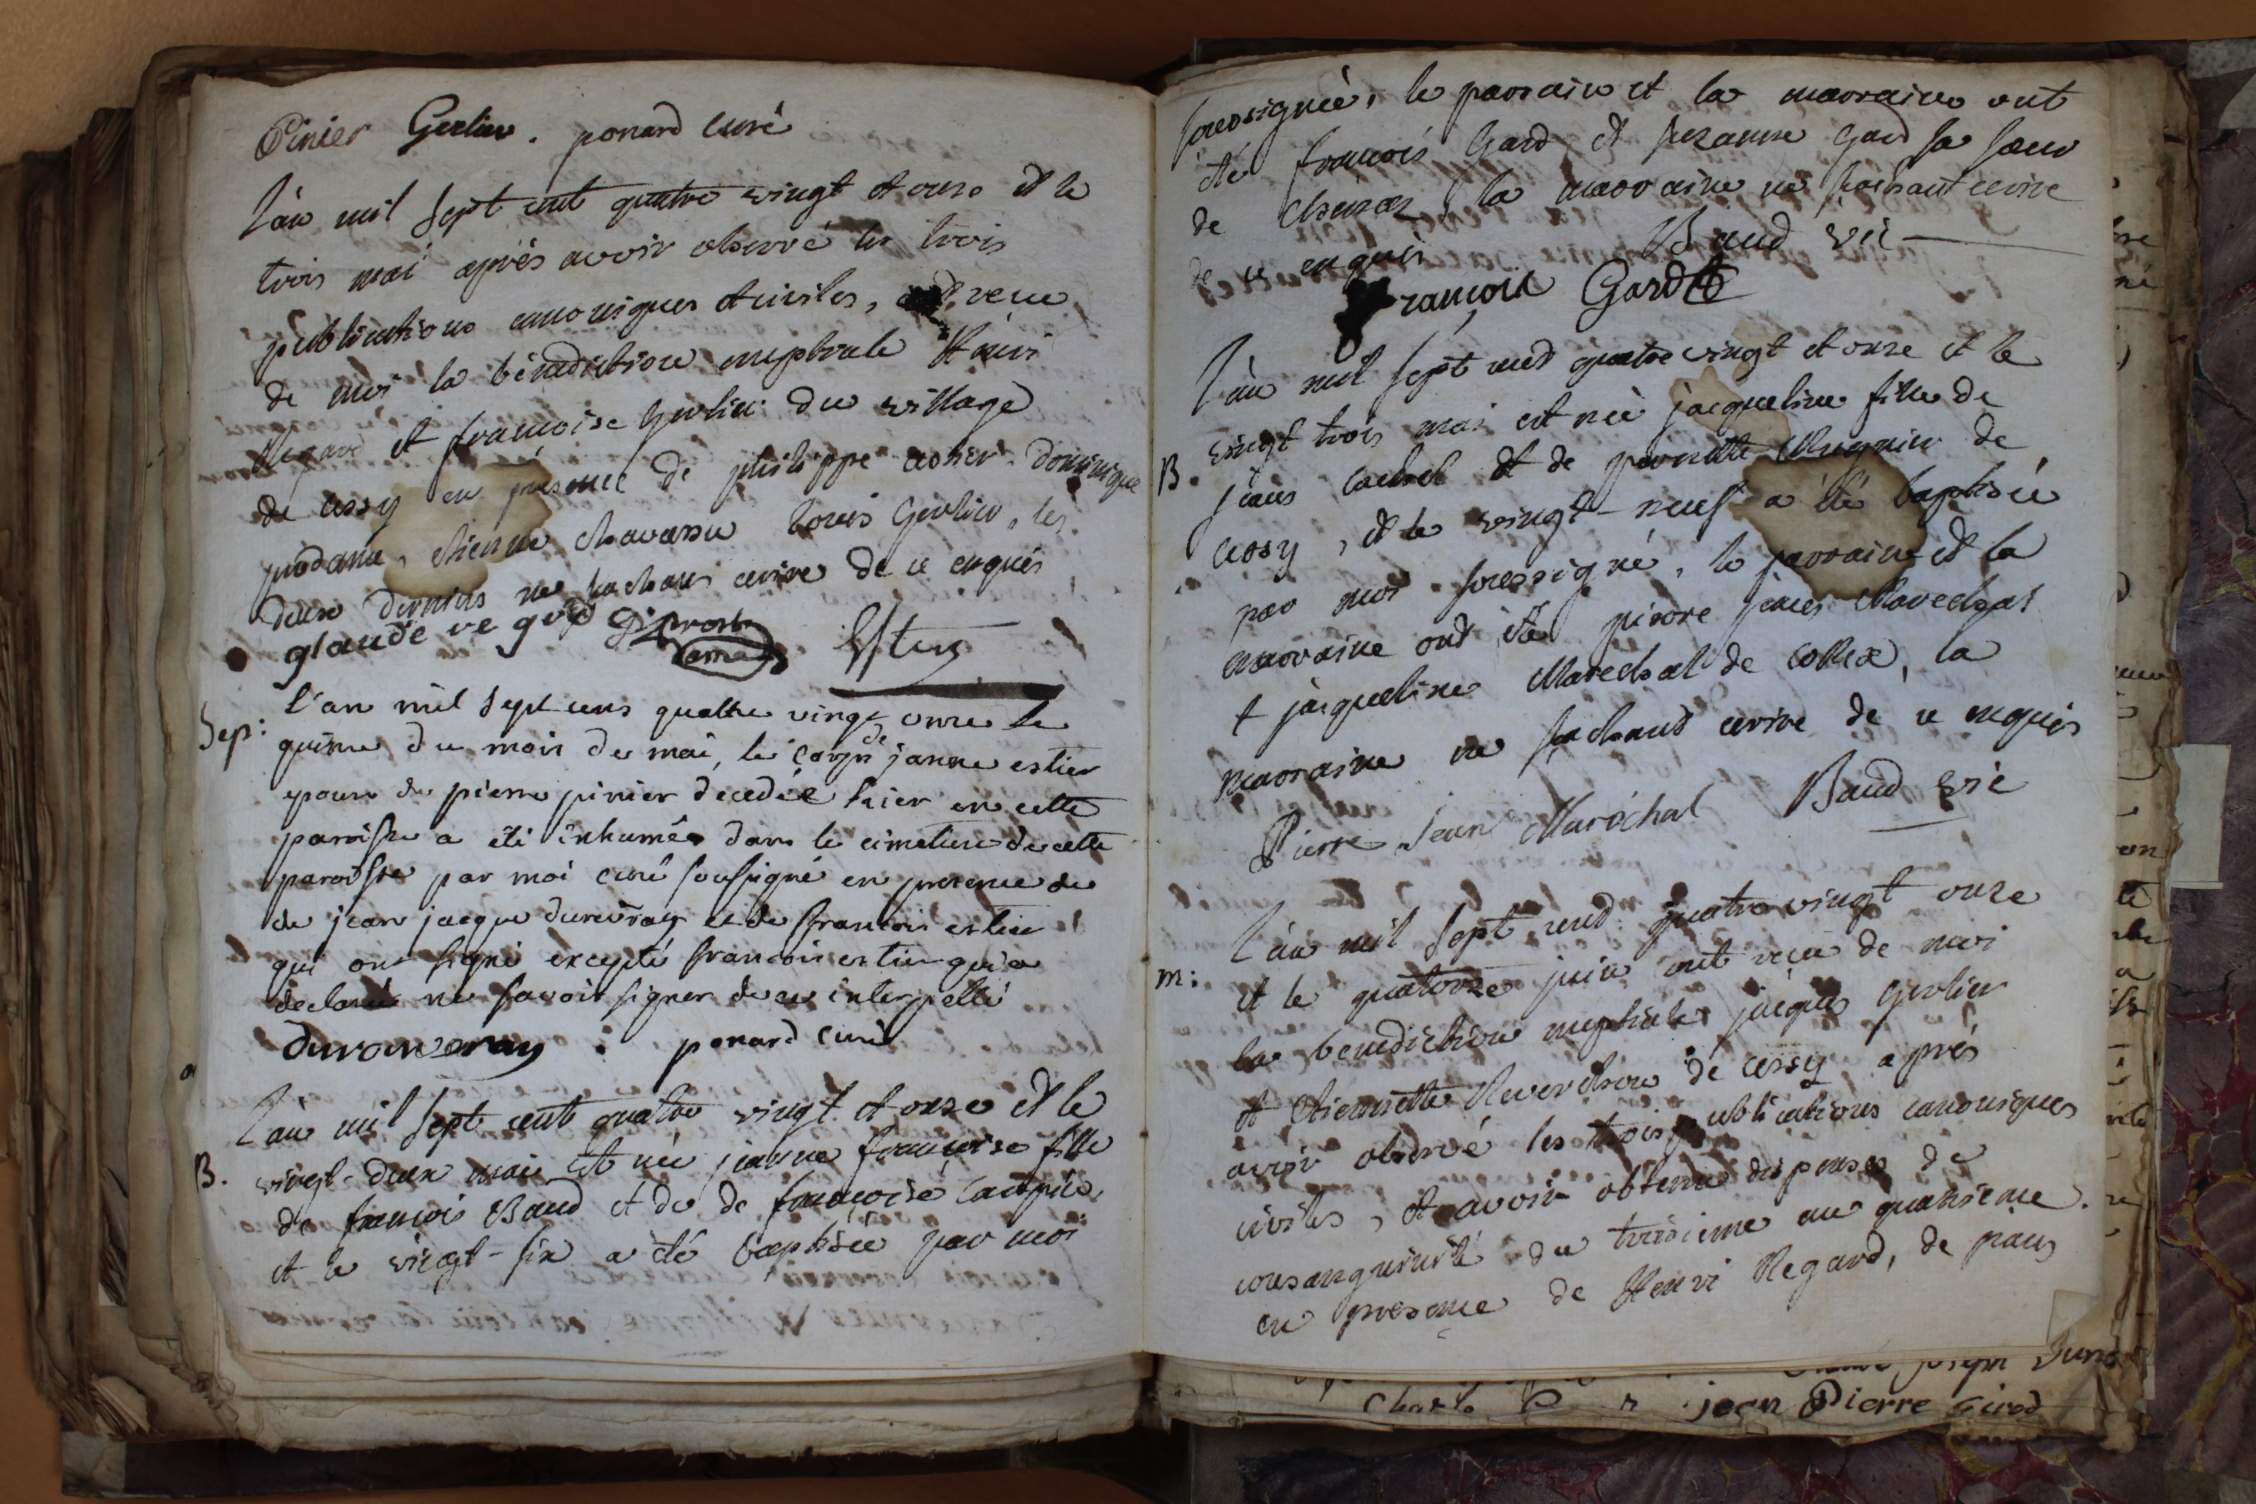 Pinier Gerlier. ponard curé
L'an mil sept cent quatre vingt et onze et le
trois mai après avoir observé les trois
publications canoniques et civiles, ont recu
de moi la bénédiction nuptiale Henri
Regard et françoise Gerlier du village
de cessy en présence de philippe dominique
prodame, etienne chavassu Louis Gerlier, les
deux derniers ne sachans ecrire de ce enquis
glaude re gard
Sep:
l'an mil sept cens quattre vingt onze le
quinze du mois de mai, le corps de janne estier
epouse de pierre pinier decedée hier en cette
paroisse a été inhumée dans le cimetiere de cette
paroisse par moi curé soussigné en presence de
de jean jacque durouvray et de francois estier
qui ont signé excepté francois estier qui a
declaré ne savoir signer de ce interpellé
durouveray : ponard curé
B.
L'an mil sept cent quatre vingt et onze et le
vingt-deux mai est née jeanne françoise fille
de françois Baud et de de françoise
et le vingt-six a été baptisée par moi
soussigné, le parrain et la marraine ont
été françois Gard et suzanne Gard sa sœur
de la marraine ne sachant ecrire
de ce enquis Baud vic
françois Gard
B.
L'an mil sept cent quatre vingt et onze et le
vingt trois mai est née jacqueline fille de
jean et de pernette de
cessy, et le vingt-neuf a été baptisée
par moi soussigné, le parrain et la
marraine ont été pierre jean Marechal
et jacqueline Marechal de collex, la
marraine ne sachant ecrire de ce enquis
Pierre Jean Maréchal Baud vic
m:
L'an mil sept cent quatre vingt onze
et le quatorze juin ont reçu de moi
la benediction nuptiale jacques Gerlier
et etiennette Reverchon de cessy après
avoir observé les trois publications canoniques
civiles, et avoir obtenu dispenses de
consanguinité du troisieme au quatrieme.
en presence de Henri Regard, de
jean Pierre Girod